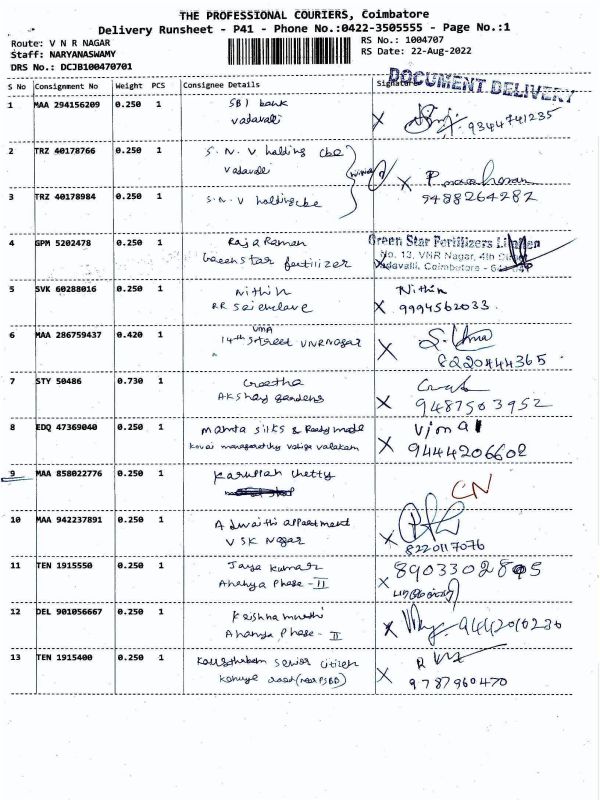 THE PROFESSIONAL COURIERS, Coimbatore
Delivery Runsheet - P41 - Phone No.:0422-3505555 - Page No.:1
Route: V N R NAGAR
Staff: NARYANASWAMY
DRS No.: DCJB100470701
RS No.: 1004707
RS Date: 22-Aug-2022
DOCUMENT DELIVERY
S No Consignment No Weight PCS Consignee Details Signature
1 MAA 294156209 0.250 1 SBI bank X
Vadavalli 9344741235
2 TRZ 40178766 0.250 1 S.N.V holding cbe
Vadavalli X
3 TRZ 40178984 0.250 1 S.N.V holding cbe 9488264282
4 GPM 5202478 0.250 1 Raja Raman Green Star Fertilizers
Greenstar fertilizer No. 13, VNR Nagar, 4th
Vadavalli, Coimbatore
5 SVK 60288016 0.250 1 Nithin Nithin
RR X 9994562033
6 MAA 286759437 0.420 1 UMA X S. Uma
14th Street VNR Nagar 8220444365
7 STY 50486 0.730 1 Geetha
Akshay gardens X 9487503952
8 EDQ 47369040 0.250 1 mamta silks & Readymade Vimal
X 9444206602
9 MAA 858022776 0.250 1 Karuppiah Chetty CN
10 MAA 942237891 0.250 1 Adwaithi appartment X
VSK Nagar 8220117076
11 TEN 1915550 0.250 1 Jaya kumar
Ananya Phase - II X
12 DEL 901056667 0.250 1 Krishna X 9442010236
Ananya Phase - II
13 TEN 1915400 0.250 1 senior citizen
road (near PSBD) X 9787960470